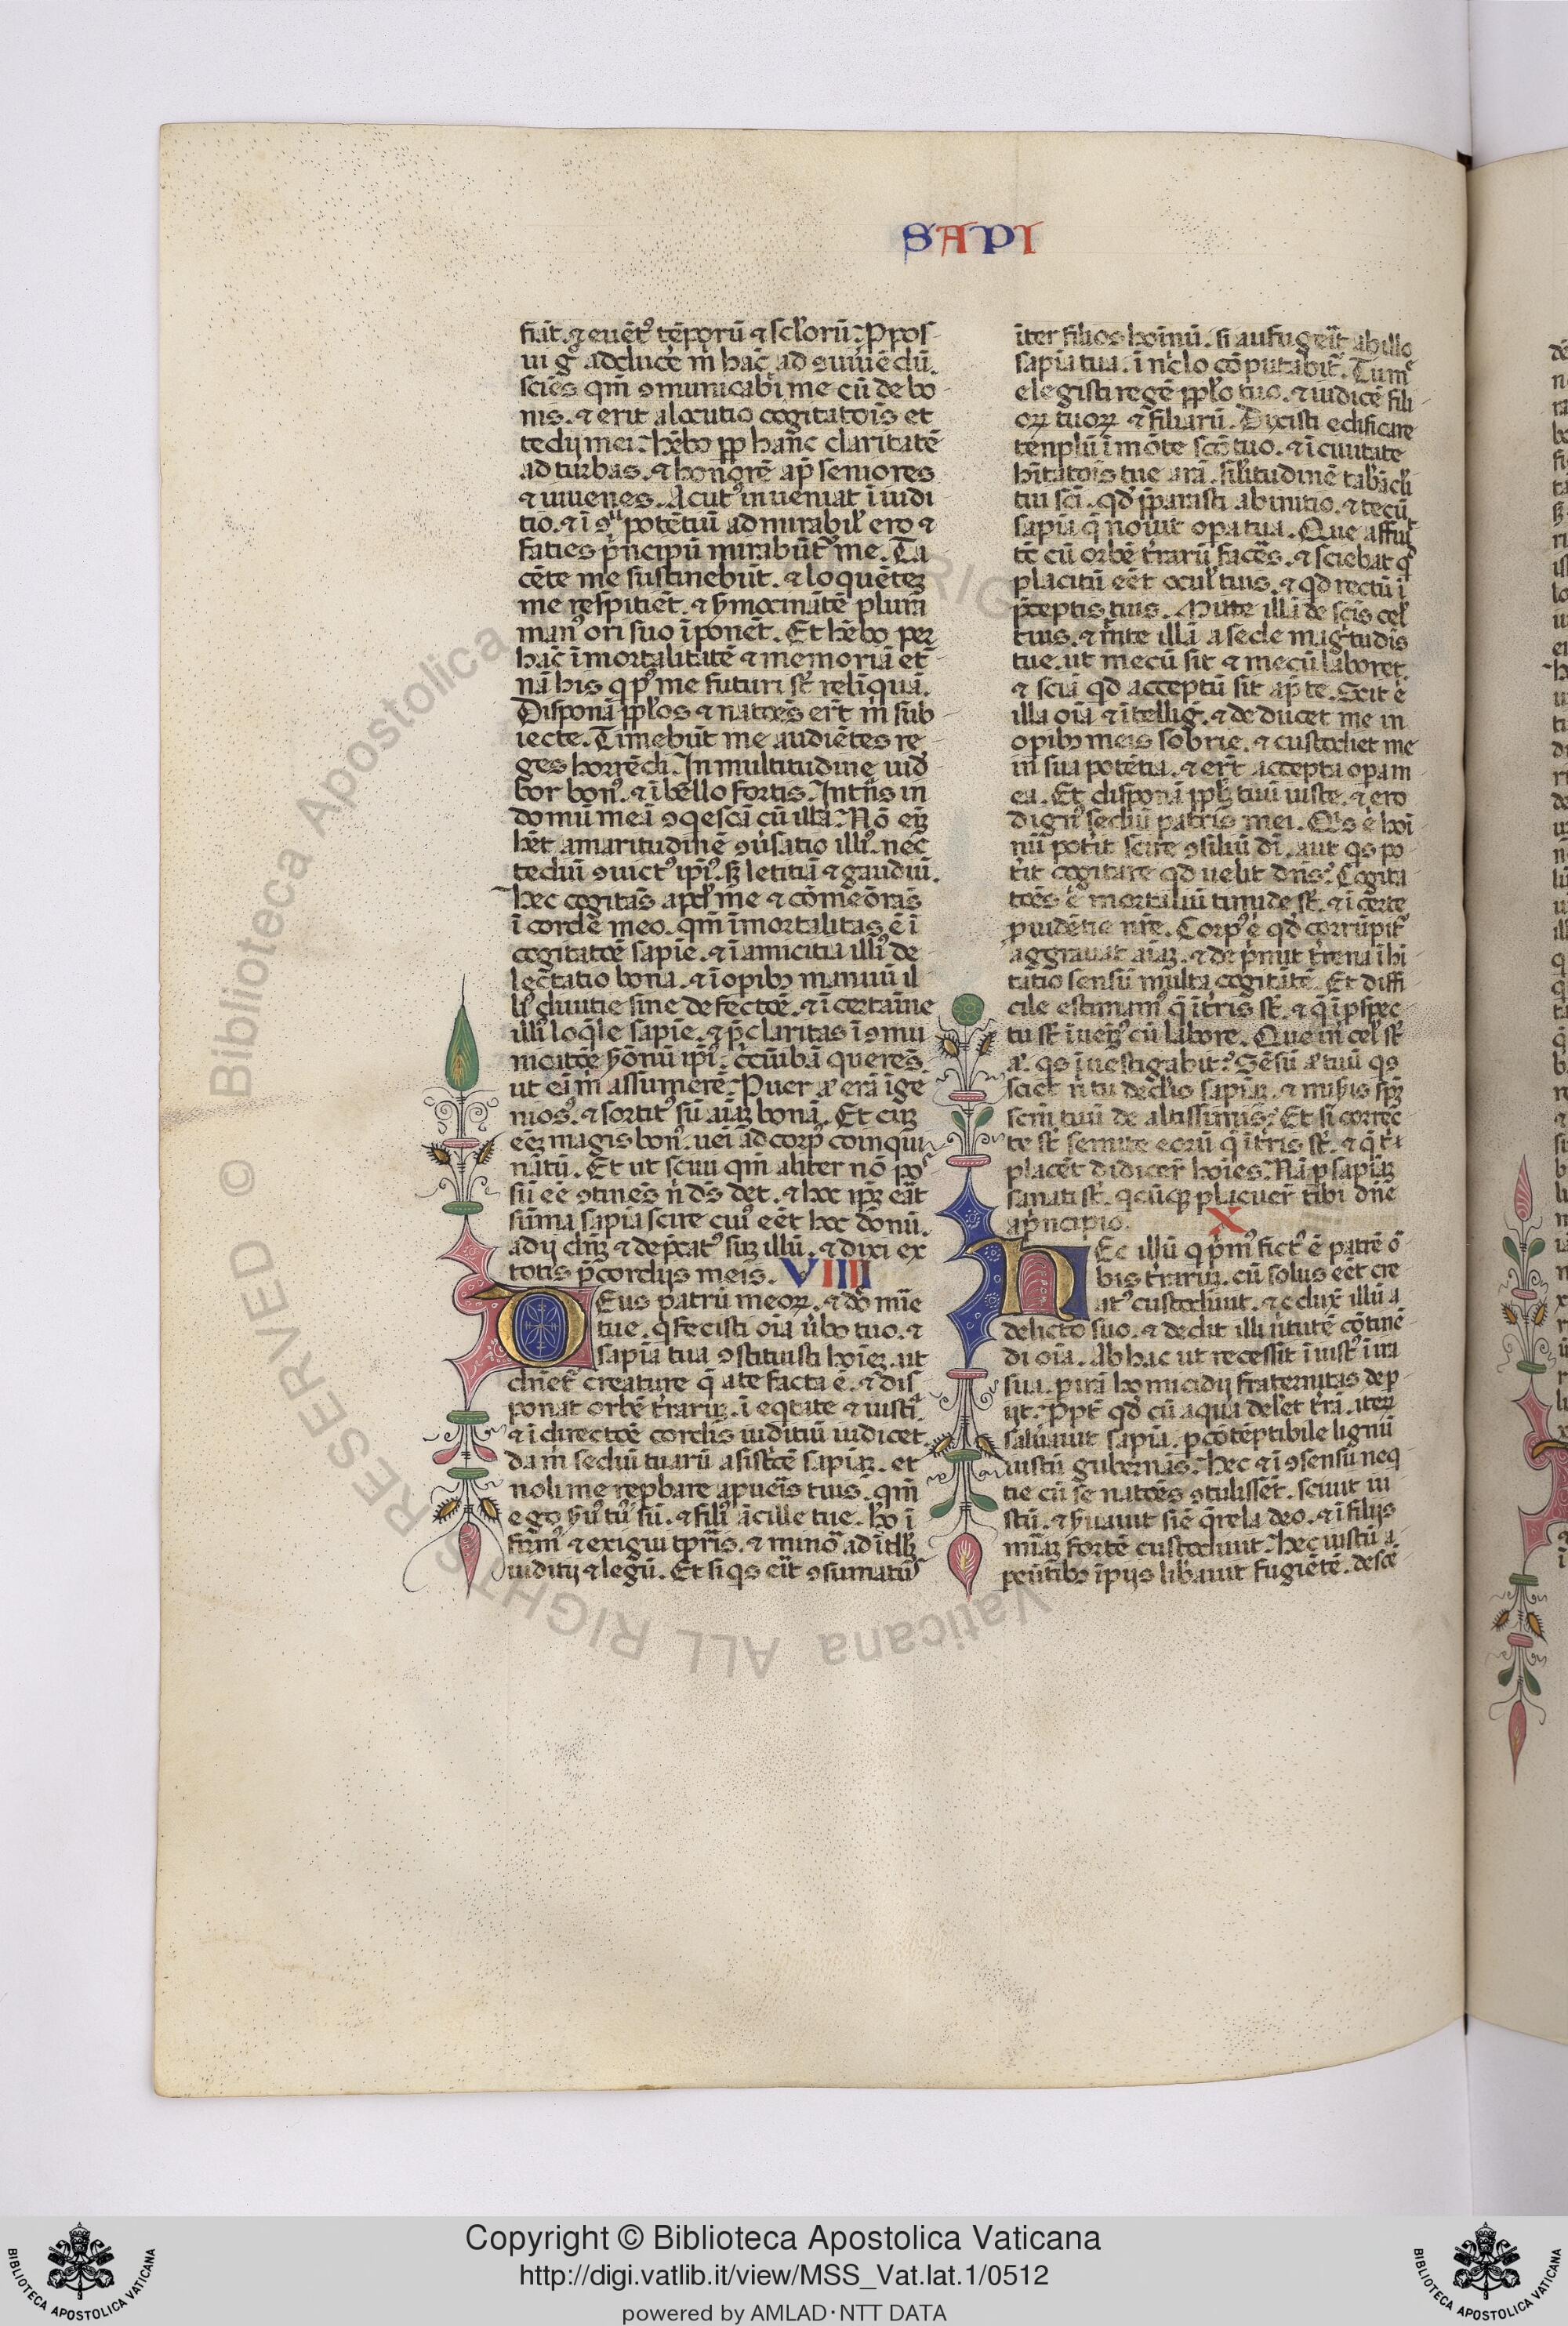 SAPI
fiāt. ⁊ euēt᷒ tēporū ⁊ sclorū. Ppos
ui g̊ adducē m̄ hāc ad ꝯuiuēdū.
sciēs qm̄ ꝯmunicabī me cū de bo
nis. ⁊ erit alocutio cogitatōis et
tedij mei. hēbo ꝓp hanc claritatē
ad turbas. ⁊ honorē ap̄ seniores
⁊ iuuenes. Acut᷒ inueniar ī iudi
tio. ⁊ ī ꝯ potētiū admirabil' ero ⁊
faties p̄ncipū mirabūt᷒ me. Ta
cēte me sustinebūt. ⁊ loquētez
me respitiēt. ⁊ smocinātē plura
man᷒ ori suo īponēt. Et hēbo per
hāc īmortalitatē ⁊ memoriā et̄
nā his q p᷒ me futuri st̄ relīquā.
Disponā ꝓplos ⁊ natōēs ert̄ m̄ sub
iecte. Timebūt me audiētes re
ges horrēdi. In multitudine uid̄
bor bon᷒. ⁊ ī bello fortis. Int̄ns in
domū meā ꝯqescā cū illa. Nō eiz
hēt amaritudinē ꝯūsatio illi᷒. nec
tediū ꝯuict᷒ ipi᷒. sꝫ letitiā ⁊ gaudiū.
hec cogitās apd' me ⁊ cōmeōrās
ī corde meo. qm̄ īmortalitas ē ī
cogitatōē sapie. ⁊ ī amicitia illi᷒ de
lectatio bona. ⁊ ī opibꝫ manuū il
li᷒ diuitie sine defectōē. ⁊ ī certaīne
illi᷒ loq̄le sapīe. ⁊ p̄claritas ī ꝯmu
nicatōe smōnū ipi᷒. circuībā querēs
ut eā m̄ assumerē. Puer aūt erā īge
nios᷒. ⁊ sortit᷒ sū aīaz bonā. Et cuz
eez magis bon᷒. ueī ad corp᷒ coinqui
nātū. Et ut sciui qm̄ aliter nō pos
sū eē ꝯtinēs n̄ ds̄ det. ⁊ hoc ipz erāt
sūma sapīa scire cui᷒ eēt hoc donū.
adij dnz ⁊ dep̄cat᷒ suz illū. ⁊ dixi ex
totis p̄cordijs meis. VIIII
Deus patrū meoꝝ. ⁊ dn̄ mīe
tue. q fecisti oīa ūbo tuo. ⁊
sapīa tua ꝯstituisti hoīez. ut
dn̄et᷒ creature q̄ a te facta ē. ⁊ dis
ponat orbē t̄raruz. ī eqtate ⁊ iustī.
⁊ ī directōē cordis iuditiū iudicet.
da m̄ sediū tuarū asistcē sapīaz. et
noli me repbare a pueris tuis. qm̄
ego su᷒ tu᷒ sū. ⁊ fili᷒ ācille tue. ho ī
firm᷒ ⁊ exigui tpris. ⁊ minor ad ītlꝫ
iuditij ⁊ legū. Et si qs eīt ꝯsumatus
īter filios hoīnū. si aufugerit ab illo
sapīa tua. ī nicl'o cōputabit᷒. Tu me
elegisti regē ꝓplo tuo. ⁊ iudicē fili
oꝝ tuoꝝ ⁊ filiarū. Dixisti edificare
tēnplū ī mōte sc̄o tuo. ⁊ ī ciuitate
hītatōis tue arā. sil'itudinē tab̄acli
tui sc̄i. qd' p̄parasti ab initio. ⁊ tecū
sapīa q̄ nouit opa tua. Que affuit
tē cū orbē t̄rarū facēs. ⁊ sciebat qd
placitū eēt ocul' tuis. ⁊ qd rectū ī
p̄ceptis tuis. Mitte illā de sc̄is cel'
tuis. ⁊ mitte illā a sede mag̊tudīs
tue. ut mecū sit ⁊ mecū laboret.
⁊ sciā qd acceptū sit ap̄ te. Scit ē
illa oīa ⁊ ītellig̊. ⁊ deducet me in
opibꝫ meis sobrie. ⁊ custodiet me
in sua potētia. ⁊ ert̄ accepta opa m
ea. Et disponā ꝓplꝫ tuū iuste. ⁊ ero
dign᷒ sediū patris mei. Qs ē hoī
nū potit scire ꝯsiliū dī. aut qs po
tit cogitare qd uelit dn̄s. Cogita
tōēs ē mortaliū timide st̄. ⁊ īcerte
puidētie nr̄e. Corp᷒ ē qd' corrūpit᷒
aggrauat aīaz. ⁊ dep̄mit t̄rena īhi
tatio sensū multa cogitātē. Et diffi
cile estimam᷒ q̄ ī t̄ris st̄. ⁊ q̄ ī pspec
tu st̄ īueiz᷒ cū labore. Que ī cel' st̄
aūt. qs īuestigabit. Sēsū aūt tuū qs
sciet n̄ tu ded'is sapīaz. ⁊ mis̄is spz
sc̄m tuū de altissimis. Et si correc
te st̄ semite eorū q̄ ī t̄ris st̄. ⁊ q̄ t̄i
placēt didicer̄ hoīes. Nā p sapīaz
sanati st̄. qcūqꝫ placuer̄ tibi dn̄e
a p̄ncipio. X
Hec illū q pm᷒ fict᷒ ē a patre or
bis t̄raruz. cū solus eēt cre
at᷒ custodiuit. ⁊ eduxit illū a
delicto suo. ⁊ dedit illi ūtutē cōtinē
di oīa. Ab hac ut recessit iniust᷒ ī ira
sua. p irā homicidij fraternitas dep
ijt. Ppt̄ qd' cū aqua delet t̄rā. iterz
saluauit sapīa. p cōtēptibile lignū
iustū gubernās. Hec ⁊ ī ꝯsensu neq
tie cū se natōēs ꝯtulissēt. sciuit iu
stū. ⁊ ꝯseruauit sine q̄rela deo. ⁊ ī filijs
mīaz fortē custodiuit. Hec iustū a
peūtibꝫ īpijs libauit fugiētē. descē
Copyright © Biblioteca Apostolica Vaticana
http://digi.vatlib.it/view/MSS_Vat.lat.1/0512
powered by AMLAD·NTT DATA
BIBLIOTECA APOSTOLICA VATICANA
BIBLIOTECA APOSTOLICA VATICANA
© Biblioteca Apostolica Vaticana ALL RIGHTS RESERVED